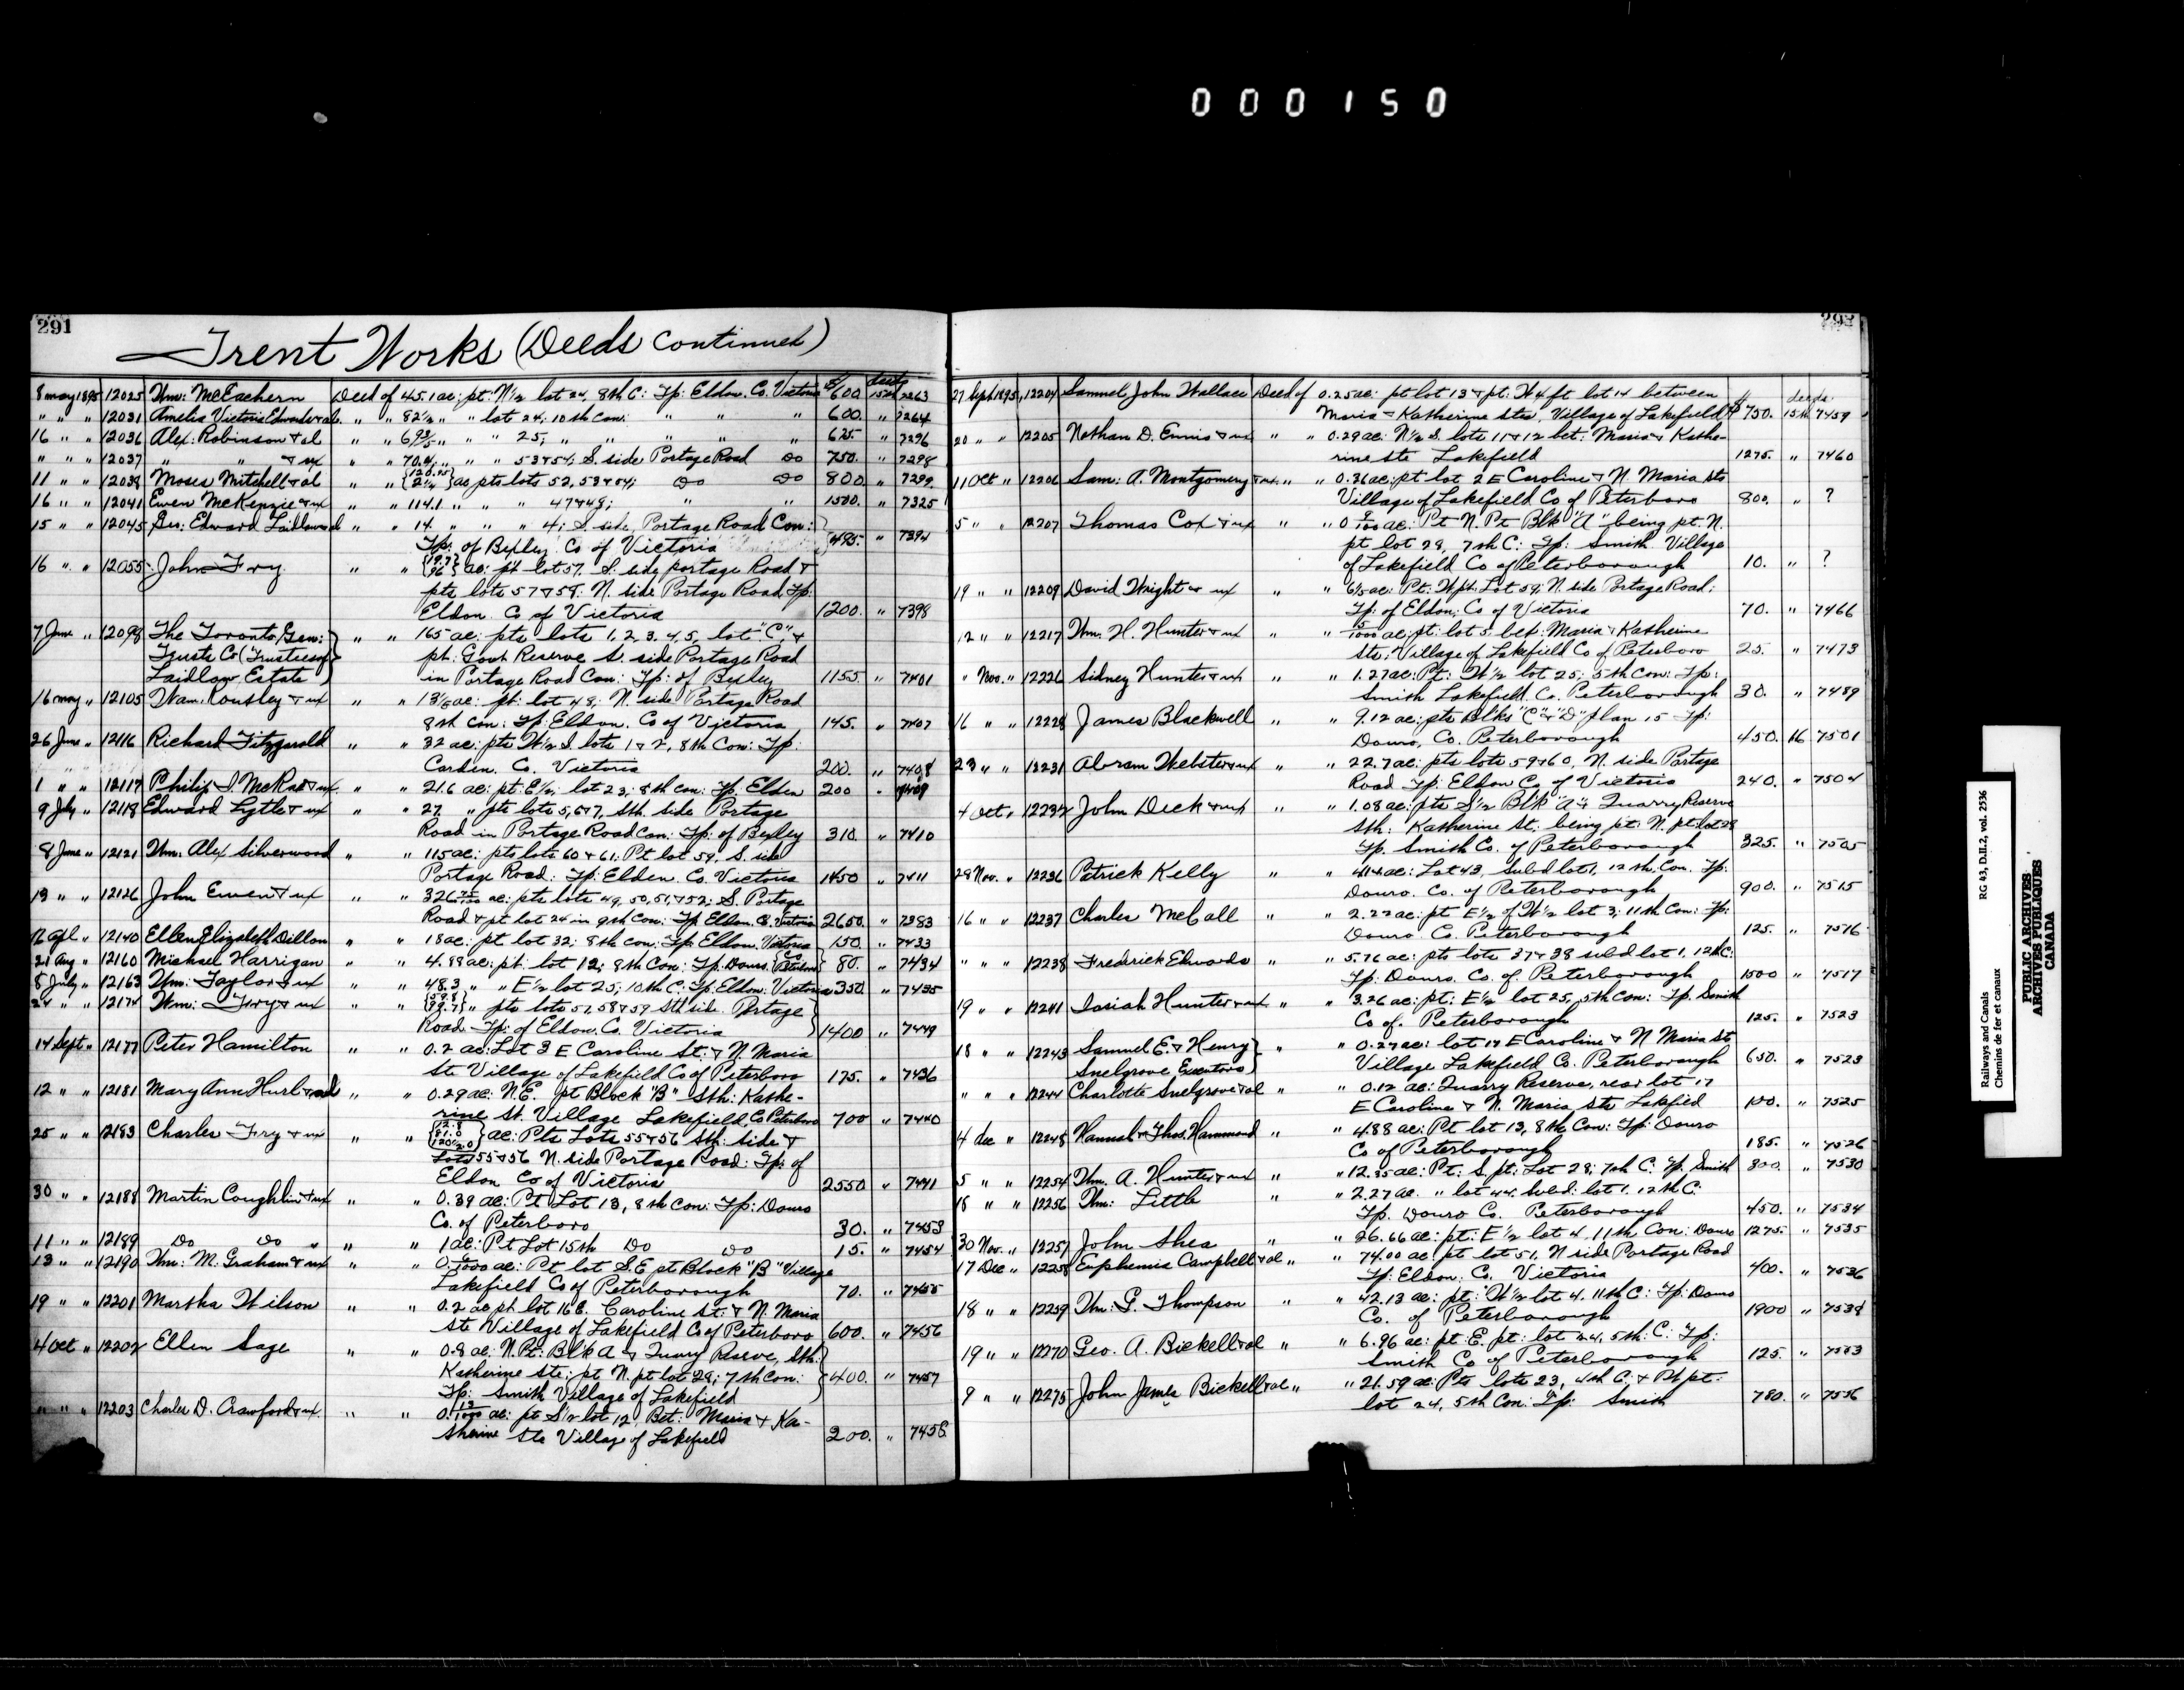 000150
291
Trent Works (Deeds Continued)
$ deeds
8 May 1895 12025 Wm: McEachern Deed of 45.1 ac: pt: N½ lot 24, 8th C: Tp: Eldon, Co. Victoria 600. 15th 7263
" " " 12031 Amelia Victoria Edwards & al. " " 82½ " " lot 24; 10th Con: " " " 600. " 7264
16 " " 12036 Alex: Robinson & al " " " " 25; " " " " " 625. " 7296
" " " 12037 " " & ux " " " " " 53 & 54; S. side Portage Road do 750. " 7298
11 " " 12038 Moses Mitchell & al " " ac pts lots 52, 53 & 54; do do 800. " 7299
16 " " 12041 Ewen McKenzie & ux " " 114.1 " " " 47 & 48; " " 1500. " 7325
15 " " 12045 Geo: Edward Laidlaw & al " " 14 " " " 4; S. side, Portage Road Con:
Tp: of Bexley Co of Victoria 495. " 7394
16 " " 12055 John Fry " " ac: pt lot 57, S. side portage Road &
pts lots 57 & 58: N. side Portage Road, Tp:
Eldon. Co of Victoria 1200. " 7398
7 June " 12098 The Toronto Gen: " " 165 ac: pts lots 1, 2, 3, 4, 5, lot "C", &
Trusts Co (Trustees of pt: Govt Reserve S. side Portage Road
Laidlaw Estate) in Portage Road Con: Tp: of Bexley 1155. " 7401
16 May " 12105 Wam. Rousley & ux " " ac: pt: lot 48; N. side Portage Road
8th Con: Tp: Eldon. Co of Victoria 145. " 7407
26 June " 12116 Richard Fitzgerald " " 32 ac: pts W½ S. lots 1 & 2, 8th Con: Tp:
Carden. Co. Victoria 200. " 7408
1 " " 12117 Philip I. McRae & ux " " 21.6 ac: pt: E½ lot 23, 8th Con: Tp. Eldon 200 " 7409
9 July " 12118 Edward Lytle & ux " " 27. " pts lots 5, 6 & 7, Sth. side Portage
Road in Portage Road Con: Tp: of Bexley 310. " 7410
8 June " 12121 Wm: Alex Silverwood " " 115 ac: pts lots 60 & 61: Pt lot 59, S. side
Portage Road: Tp: Eldon. Co. Victoria 1450 " 7411
13 " " 12126 John Ewen & ux " " ac: pts lots 49, 50, 51, & 52; S. Portage
Road & pt lot 24 in 9th Con: Tp Eldon. Co. Victoria 2650. " 7383
16 Apl " 12140 Ellen Elizabeth Dillon " " 18 ac: pt lot 32; 8th Con: Tp: Eldon, Victoria 150. " 7433
21 Aug " 12160 Michael Harrigan " " 4.88 ac: pt: lot 12; 8th Con: Tp. Douro. Co. Peterboro 80. " 7434
8 July " 12163 Wm: Taylor & ux " " 48.3 " " E½ lot 25; 10th C: Tp: Eldon: Victoria 350. " 7435
24 " " 12174 Wm: Fry & ux " " " pts lots 57, 58 & 59 Sth side. Portage
Road. Tp: of Eldon. Co. Victoria 1400 " 7449
14 Sept " 12177 Peter Hamilton " " 0.2 ac: Lot 3 E Caroline St: & N. Maria
Sts Village of Lakefield Co of Peterboro 175. " 7436
12 " " 12181 Mary Ann Hurl & al " " 0.29 ac: N.E. pt Block "B" Sth: Kathe-
rine St. Village Lakefield, Co Peterboro 700 " 7440
25 " " 12183 Charles Fry & ux " " ac: Pts Lots 55 & 56 Sth: side &
Lots 55 & 56 N. side Portage Road: Tp: of
Eldon Co of Victoria 2550 " 7441
30 " " 12188 Martin Coughlin & ux " " 0.39 ac: Pt Lot 13, 8th Con: Tp: Douro
Co. of Peterboro 30. " 7453
11 " " 12189 Do Do " " " 1 ac: Pt Lot 15th Do Do 15. " 7454
13 " " 12190 Wm: M. Graham & ux " " ac: Pt lot S.E pt Block "B" Village
Lakefield Co of Peterborough 70. " 7455
19 " " 12201 Martha Wilson " " 0.2 ac pt lot 16 E. Caroline St: & N. Maria
Sts Village of Lakefield Co of Peterboro 600. " 7456
4 Oct " 12202 Ellen Sage " " 0.8 ac: N. Pt: Blk A & Quarry Reserve, Sth:
Katherine Sts; pt N. pt lot 28; 7th Con:
Tp: Smith Village of Lakefield 400. " 7457
" " " 12203 Charles D. Crawford & ux " " ac: pt S½ lot 12, Bet: Maria & Ka-
therine Sts Village of Lakefield 200. " 7458
292
$ deeds:
27 Sept 1895 12204 Samuel John Wallace Deed of 0.25 ac: pt lot 13 & pt: W 4 ft lot 14 between
Maria & Katherine Sts, Village of Lakefield 750. 15th 7459
20 " " 12205 Nathan D. Ennis & ux " " 0.29 ac: N½ S. lots 11 & 12 bet: Maria & Kathe-
rine Sts Lakefield 1275. " 7460
11 Oct " 12206 Sam: A. Montgomery & ux " " 0.36 ac: pt lot 2 E Caroline & N. Maria Sts
Village of Lakefield Co of Peterboro 800. " ?
5 " " 12207 Thomas Cox & ux " " 0 9/100 ac: Pt N. Pt Blk "A" being pt. N.
pt lot 28, 7th C: Tp: Smith Village
of Lakefield Co of Peterborough 10. " ?
19 " " 12209 David Wright & ux " " ac: Pt: W pt: Lot 59; N. side Portage Road;
Tp: of Eldon; Co of Victoria 70. " 7466
12 " " 12217 Wm. H. Hunter & ux " " 5/1000 ac: pt: lot 5 bet: Maria & Katherine
Sts; Village of Lakefield Co of Peterboro 25. " 7473
" Nov. " 12226 Sidney Hunter & ux " " 1.27 ac: Pt: W½ lot 25; 5th Con: Tp:
Smith Lakefield. Co. Peterborough 30. " 7489
16 " " 12228 James Blackwell " " 9.12 ac: pts Blks "C" & "D" plan 15 Tp:
Douro, Co. Peterborough 450. 16 7501
23 " " 12231 Abram Webster & ux " " 22.7 ac: pts lots 59 & 60, N. side Portage
Road Tp: Eldon Co of Victoria 240. " 7504
4 Oct. " 12232 John Dick & ux " " 1.08 ac: pts S½ Blk "A" & Quarry Reserve
Sth: Katherine St: being pt: N. pt: lot 28
Tp. Smith Co. of Peterborough 325. " 7505
28 Nov. " 12236 Patrick Kelly " " ac: Lot 43, Subd lot 1, 12th Con. Tp:
Douro. Co. of Peterborough 900. " 7515
16 " " 12237 Charles McCall " " 2.27 ac: pt E½ of W½ lot 3; 11th Con: Tp:
Douro. Co. Peterborough 125. " 7516
" " " 12238 Frederick Edwards " " 5.76 ac: pts lots 37 & 38 subd lot 1, 12th C:
Tp: Douro. Co. of Peterborough 1500 " 7517
19 " " 12241 Josiah Hunter & ux " " 3.26 ac: pt: E½ lot 25, 5th Con: Tp. Smith
Co of. Peterborough 125. " 7523
18 " " 12243 Samuel E. & Henry " " 0.27 ac: lot 17 E Caroline & N Maria St
Snelgrove Executors Village Lakefield Co. Peterborough 650. " 7523
" " " 12244 Charlotte Snelgrove & al " " 0.12 ac: Quarry Reserve, rear lot 17
E Caroline & N. Maria Sts Lakefied 100. " 7525
4 Dec " 12248 Hannah & Thos. Hammond " " 4.88 ac: Pt lot 13, 8th Con: Tp: Douro
Co of Peterborough 185. " 7526
5 " " 12254 Wm. A. Hunter & ux " " 12.35 ac: Pt: S. pt: Lot 28; 7th C: Tp. Smith 800. " 7530
18 " " 12256 Wm: Little " " 2.27 ac. " lot 44, Subd: lot 1. 12th C:
Tp. Douro Co. Peterborough 450. " 7534
30 Nov. " 12257 John Shea " " 26.66 ac: pt: E½ lot 4, 11th Con: Douro 1275. " 7535
17 Dec " 12258 Euphemia Campbell & al " " 74.00 ac: pt lot 51, N side Portage Road
Tp: Eldon: Co. Victoria 400. " 7536
18 " " 12259 Wm: G. Thompson " " 42.13 ac: pt: W½ lot 4, 11th C: Tp: Douro
Co. of Peterborough 1900 " 7538
19 " " 12270 Geo. A. Bickell & al " " 6.96 ac: pt: E. pt: lot 24, 5th: C: Tp:
Smith Co of Peterborough 125. " 7553
9 " " 12275 John James Bickell & al " " 21.59 ac: Pts lots 23, 4th C. & Pt pt:
lot 24, 5th Con: Tp: Smith 780. " 7556
Railways and Canals RG 43, D.II.2, vol. 2536
Chemins de fer et canaux
PUBLIC ARCHIVES
ARCHIVES PUBLIQUES
CANADA